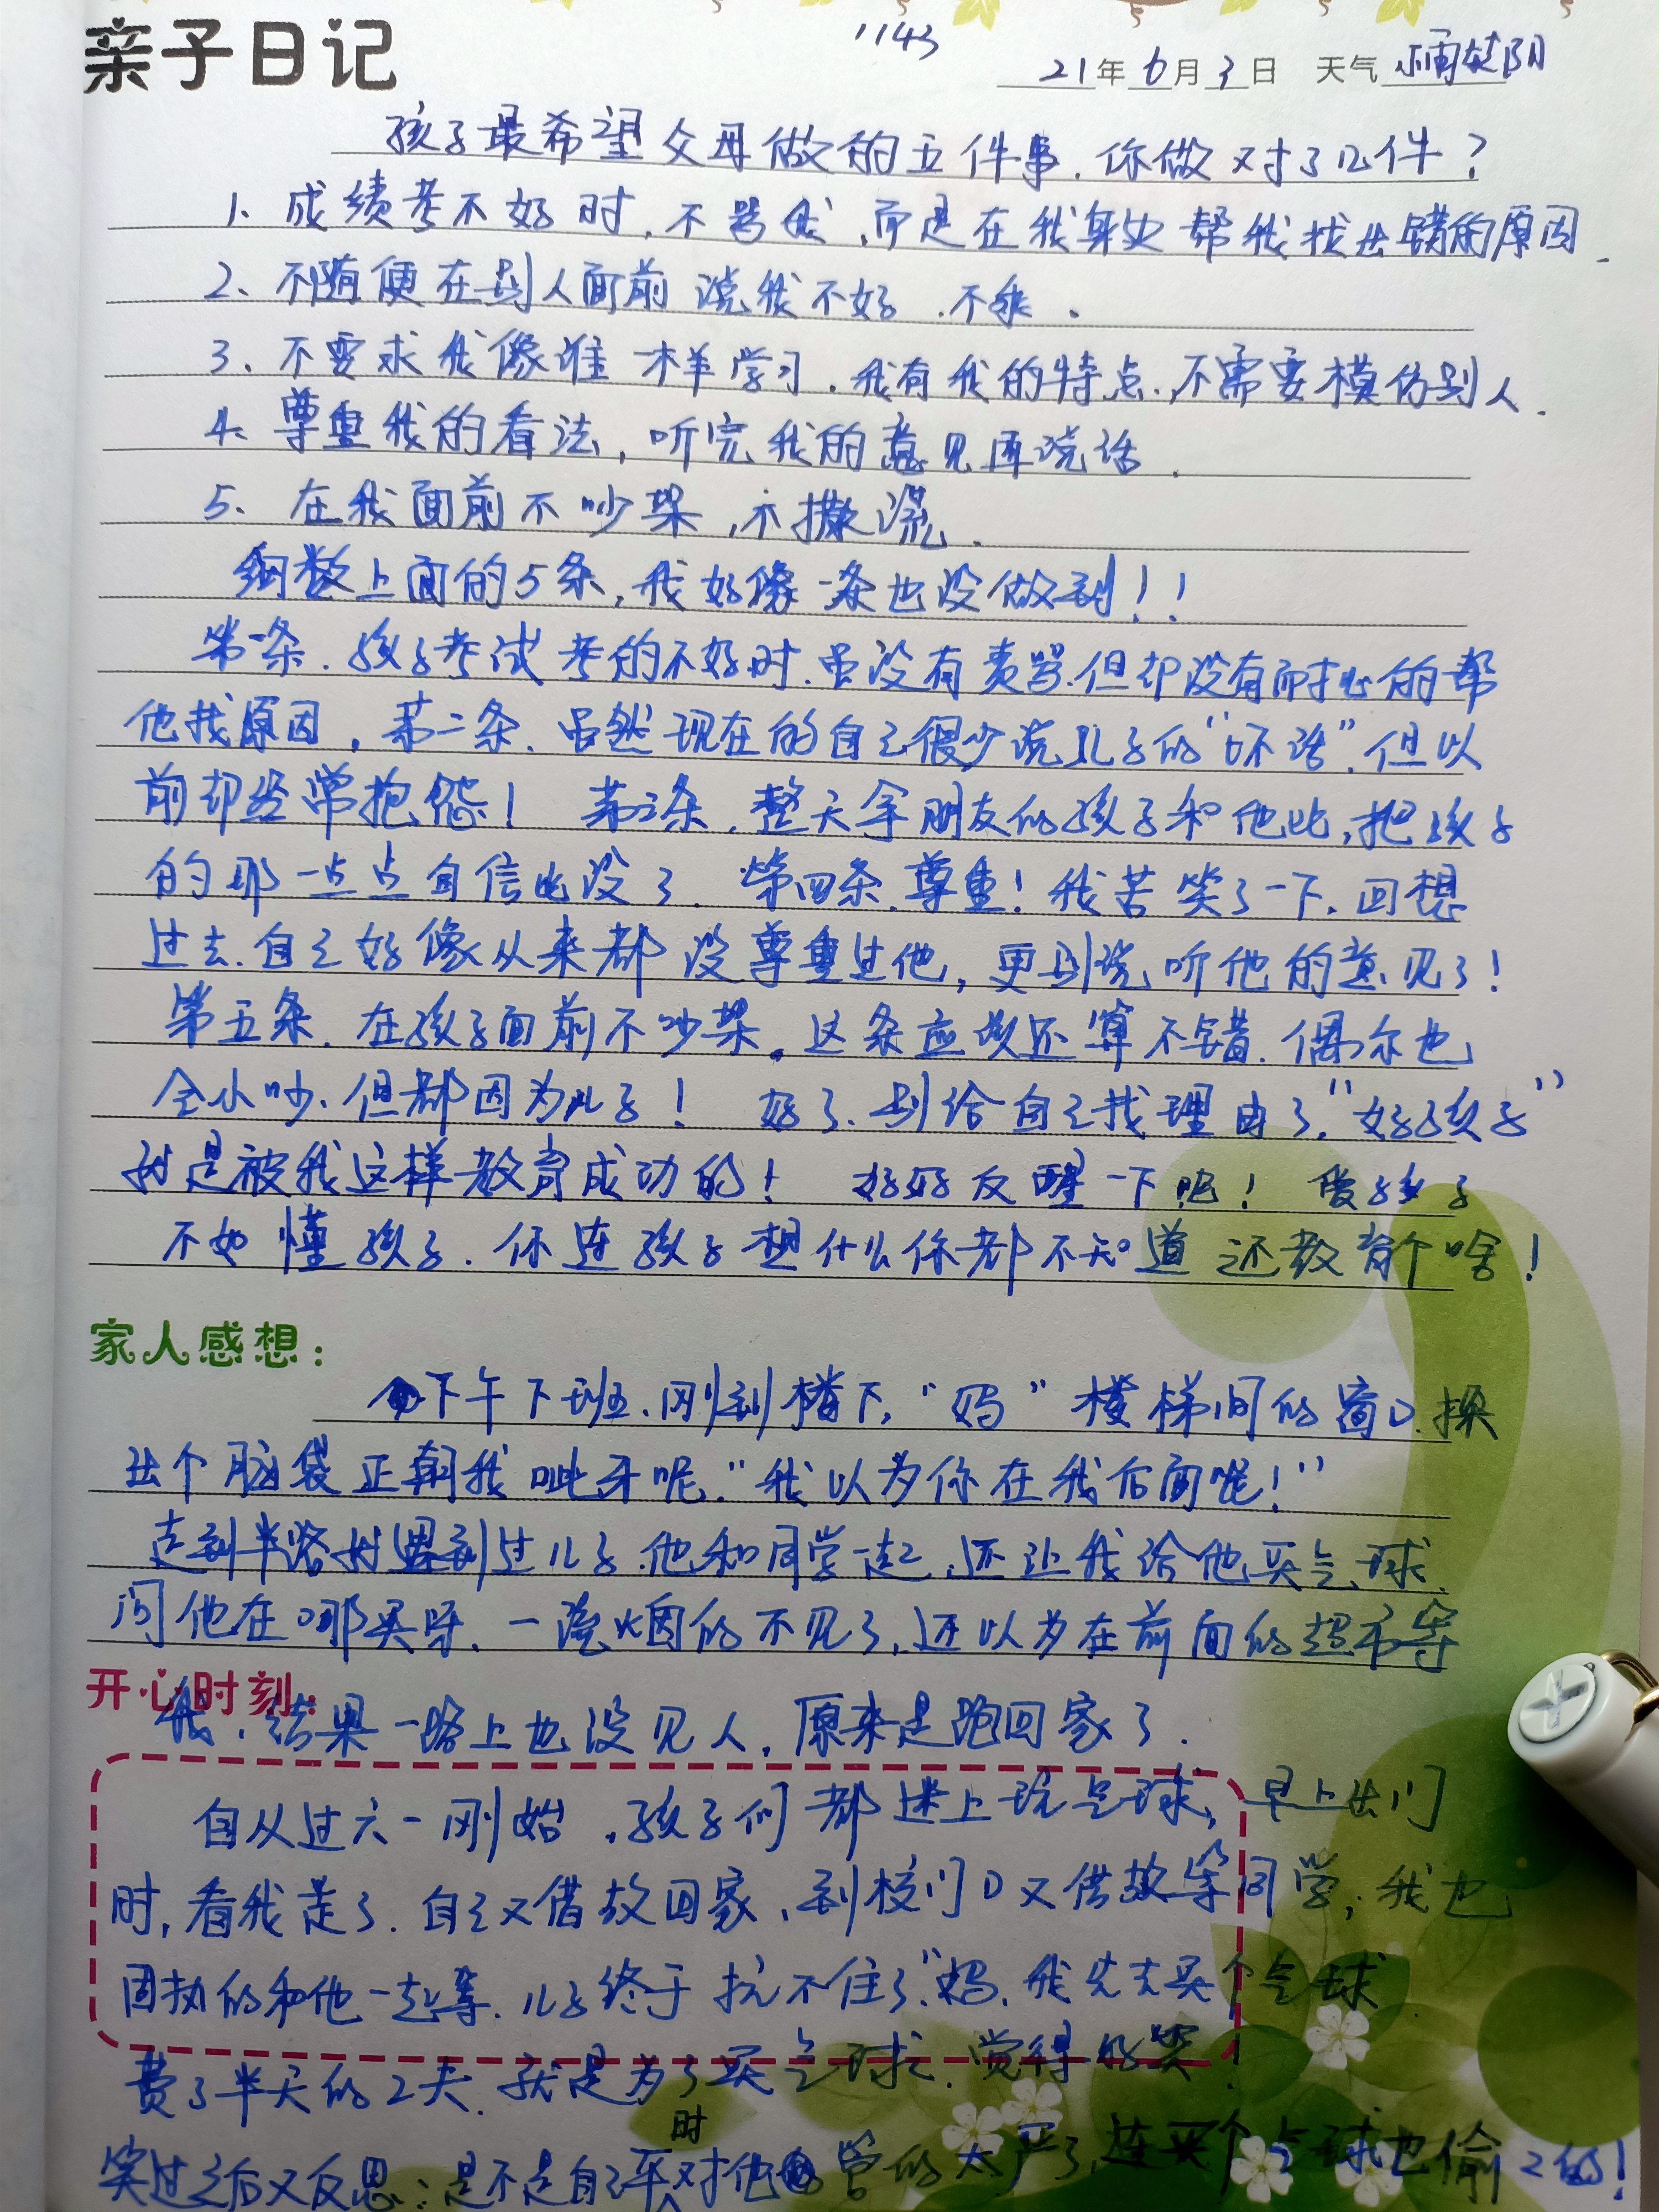 亲子日记
1143
21年6月3日 天气 小雨转阴
孩子最希望父母做的五件事.你做对了几件?
1、成绩考不好时,不骂我,而是在我身边帮我找出错的原因.
2、不随便在别人面前说我不好.不乖.
3、不要求我像谁一样学习.我有我的特点.不需要模仿别人.
4、尊重我的看法,听完我的意见再说话.
5、在我面前不吵架,不撒谎.
细数上面的5条,我好像一条也没做到!!
第一条.孩子考试考的不好时.虽没有责骂.但却没有耐心的帮
他找原因,第二条.虽然现在的自己很少说儿子的"坏话".但以
前却经常抱怨! 第三条,整天拿朋友的孩子和他比,把孩子
的那一点点自信也没了.第四条.尊重!我苦笑了一下.回想
过去.自己好像从来都没尊重过他,更别说听他的意见了!
第五条.在孩子面前不吵架。这条应该还算不错.偶尔也
会小吵.但都因为儿子! 好了.别给自己找理由了."好孩子"
就是被我这样教育成功的! 好好反醒一下吧! 爱孩子
不如懂孩子.你连孩子想什么你都不知道还教育个啥!
家人感想:
下午下班.刚到楼下,"妈"楼梯间的窗口.探
出个脑袋正朝我呲牙呢."我以为你在我后面呢!"
走到半路时遇到过儿子.他和同学一起,还让我给他买气球.
问他在哪买呀.一溜烟的不见了,还以为在前面的超市等
开心时刻:
我.结果一路上也没见人,原来是跑回家了.
自从过六一刚始,孩子们都迷上玩气球,早上出门
时,看我走了.自己又借故回家,到校门口又借故等同学,我也
固执的和他一起等.儿子终于抗不住了."妈.我先去买个气球.
费了半天的工夫.就是为了买气球.觉得好笑!
笑过之后又反思:是不是自己平时对他管的太严了,连买个气球也偷